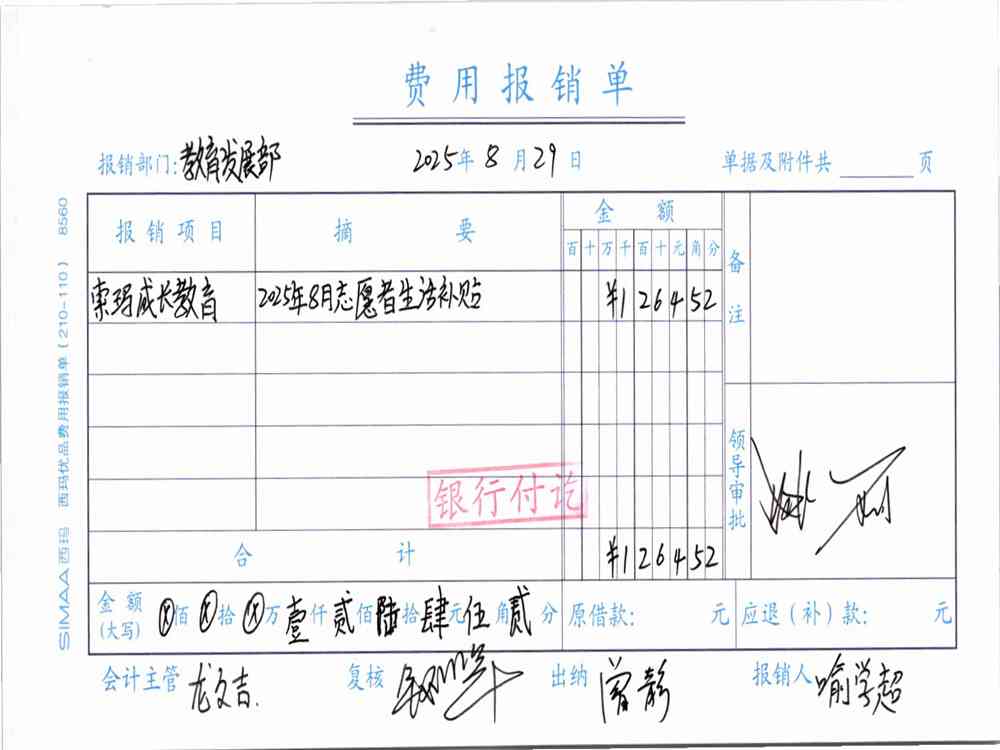 费用报销单
报销部门:教育发展部 2025年8月29日 单据及附件共 页
报销项目 摘要 金额 备注
百十万千百十元角分
索玛成长教育 2025年8月志愿者生活补贴 ¥126452
领导审批
银行付讫
合计 ¥126452
金额(大写) ⊗佰⊗拾⊗万壹仟贰佰陆拾肆元伍角贰分 原借款: 元 应退(补)款: 元
会计主管 龙文吉. 复核 出纳 曾静 报销人 喻学超
SIMAA西玛 西玛优品费用报销单(210-110) 8560